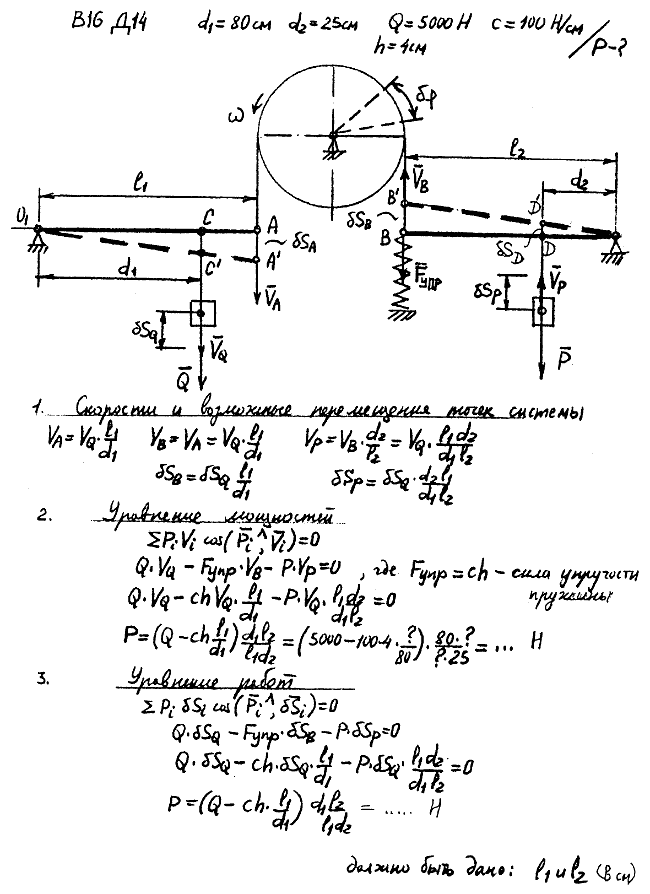 В16 Д14 d₁=80см d₂=25см Q=5000Н c=100 Н/см
h=4см P-?
ω δφ
l₁ l₂
V̄_B d₂
O₁ C A B' D'
δS_A δS_B B δS_D D
C' A'
d₁ V̄_A F̄_упр δS_P V̄_P
δS_Q V̄_Q
Q̄ P̄
1. Скорости и возможные перемещения точек системы
V_A=V_Q·l₁/d₁ V_B=V_A=V_Q·l₁/d₁ V_P=V_B·d₂/l₂=V_Q·l₁d₂/d₁l₂
δS_B=δS_Q l₁/d₁ δS_P=δS_Q·d₂l₁/d₁l₂
2. Уравнение мощностей
ΣP_i·V_i cos(P̄_i^V̄_i)=0
Q·V_Q – F_упр·V_B – P·V_P=0 , где F_упр=ch – сила упругости
пружины
Q·V_Q – chV_Q·l₁/d₁ – P·V_Q·l₁d₂/d₁l₂=0
P=(Q–ch l₁/d₁)d₁l₂/l₁d₂=(5000–100·4·?/80)·80·?/?·25=... Н
3. Уравнение работ
ΣP_i δS_i cos(P̄_i^,δS̄_i)=0
Q·δS_Q – F_упр·δS_B – P·δS_P=0
Q·δS_Q – ch·δS_Q l₁/d₁ – P·δS_Q·l₁d₂/d₁l₂=0
P=(Q–ch·l₁/d₁) d₁l₂/l₁d₂ = ..... Н
должно быть дано: l₁ и l₂ (в см)